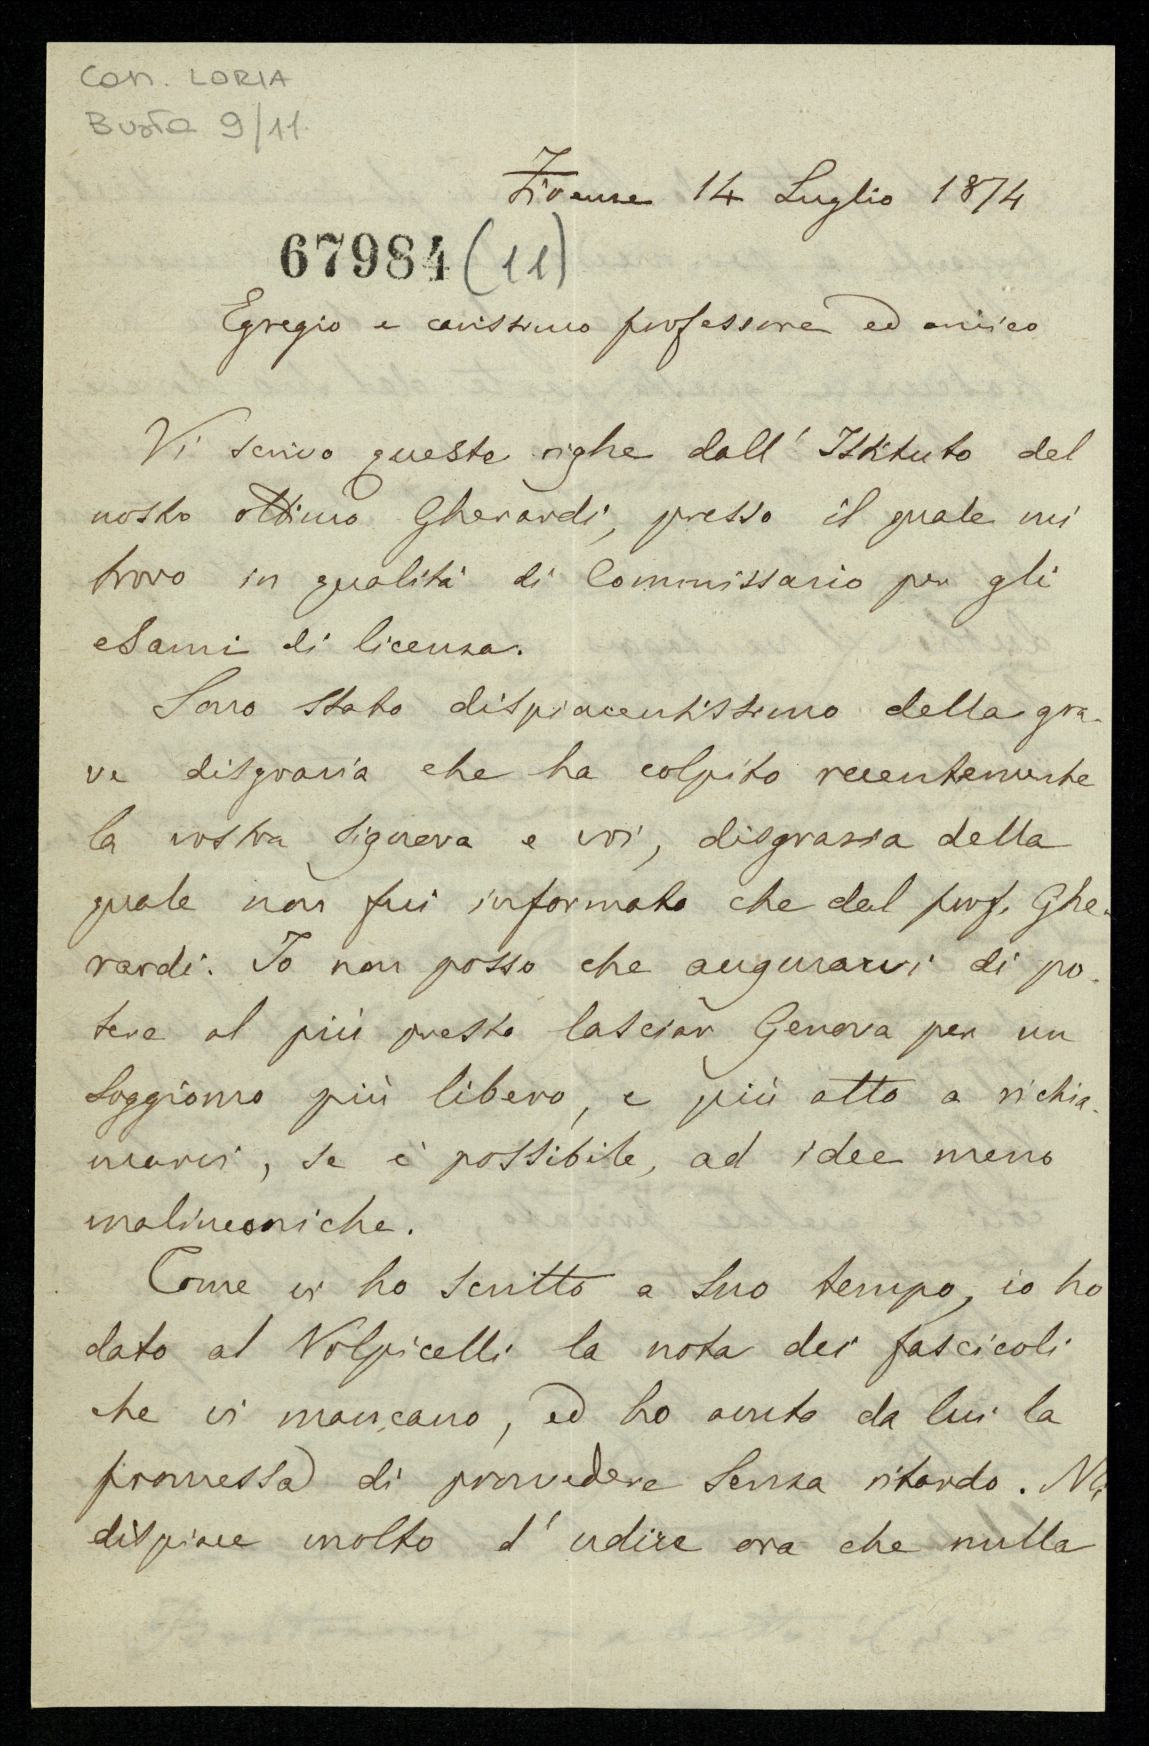 Con. LORIA
Busta 9/11.
Firenze 14 Luglio 1874
67984 (11)
Egregio e carissimo professore ed amico
Vi scrivo queste righe dall' Istituto del
nostro ottimo Gherardi, presso il quale mi
trovo in qualità di Commissario per gli
esami di licenza.
Sono stato dispiacentissimo della gra-
ve disgrazia che ha colpito recentemente
la vostra signora e voi, disgrazia della
quale non fui informato che dal prof. Ghe-
rardi. Io non posso che augurarvi di po-
tere al più presto lasciar Genova per un
soggiorno più libero, e più atto a richia-
marvi, se è possibile, ad idee meno
malinconiche.
Come vi ho scritto a suo tempo, io ho
dato al Volpicelli la nota dei fascicoli
che vi mancano, ed ho avuto da lui la
promessa di provvedere senza ritardo. Mi
dispiace molto d' udire ora che nulla